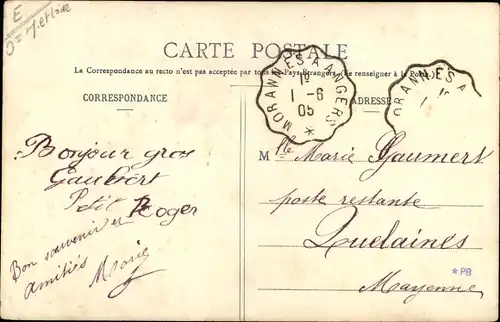 E
CARTE POSTALE
La Correspondance au recto n'est pas acceptée par tous les Pays Étrangers (Se renseigner à la Poste)
CORRESPONDANCE
ADRESSE
MORANNES A ANGERS *
18
1 - 6
05
ORANNES A
Bonjour gros
Petit Roger
Bon souvenir et
amitiés Marie
M lle Marie Gaumert
poste restante
Quelaines
Mayenne
*PB